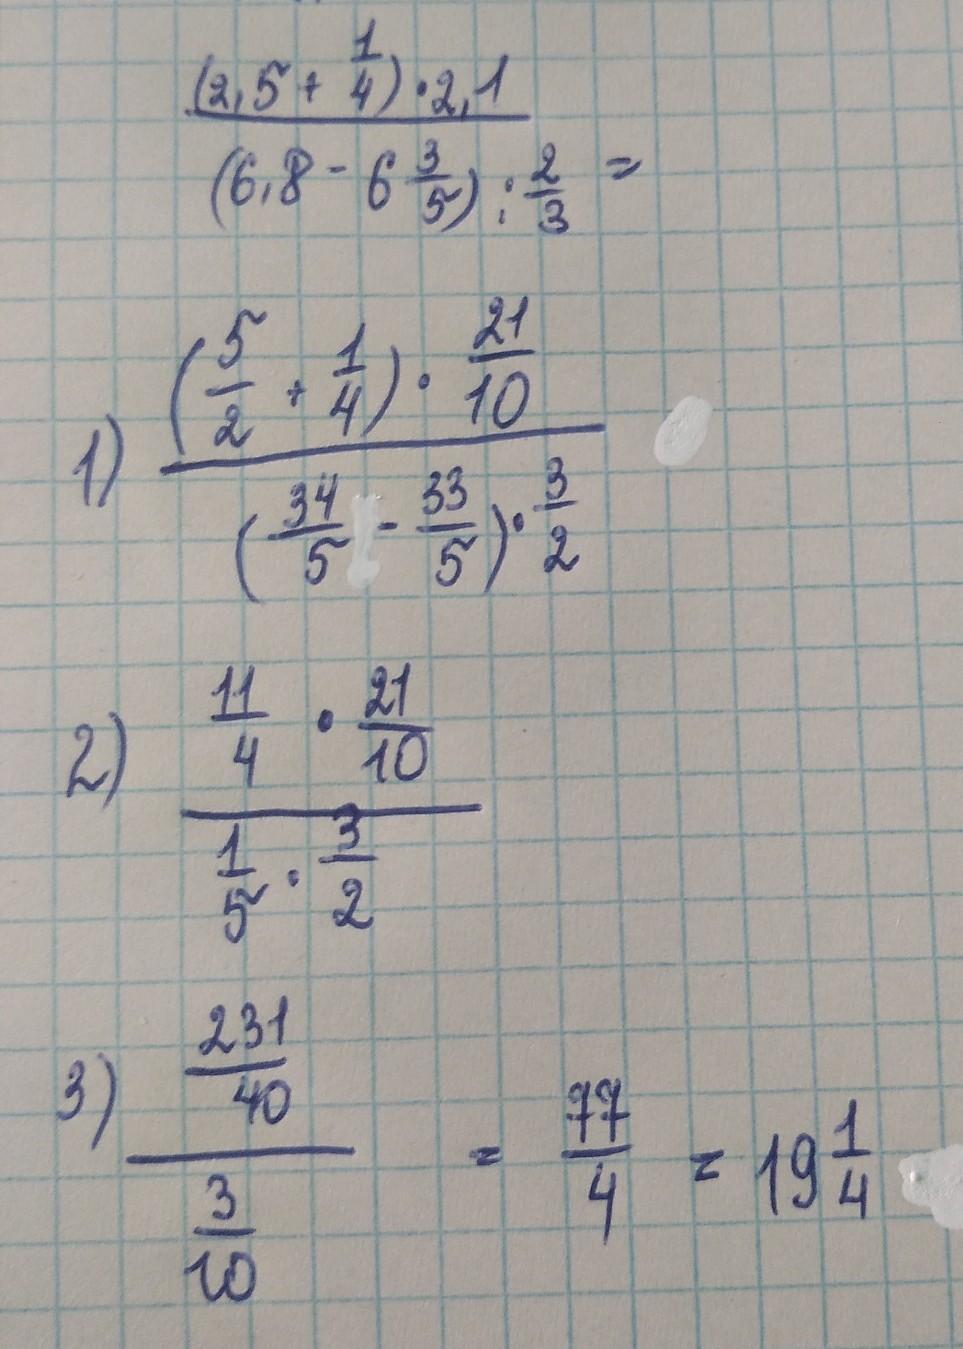 (2,5 + 1/4) · 2,1
(6,8 - 6 3/5) : 2/3 =
1) (5/2 + 1/4) · 21/10
(34/5 - 33/5) · 3/2
2) 11/4 · 21/10
1/5 · 3/2
3) 231/40
3/10 = 77/4 = 19 1/4